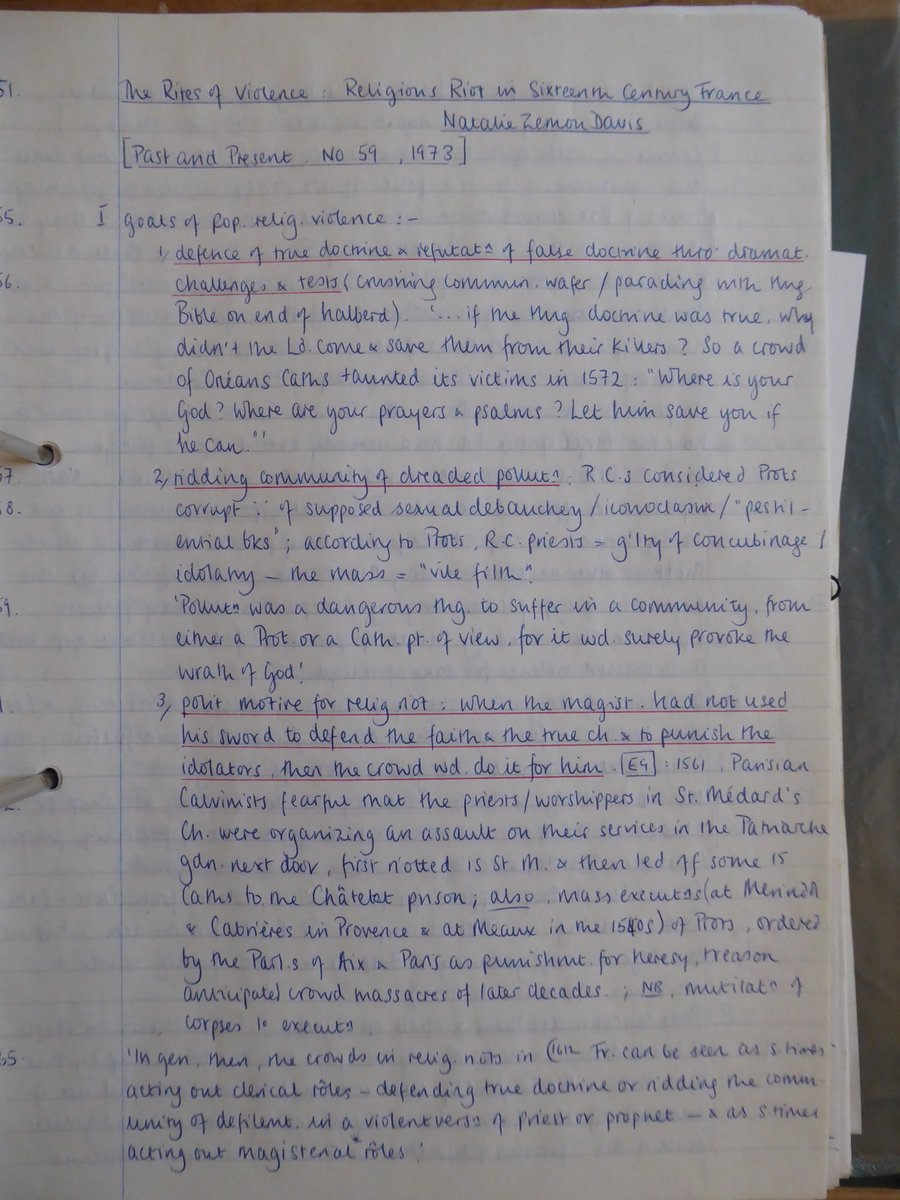 51. The Rites of Violence : Religious Riot in Sixteenth Century France
Natalie Zemon Davis
[Past and Present No 59, 1973]
55. I goals of pop. relig. violence :-
1, defence of true doctrine & refutatn of false doctrine thro' dramat.
56. challenges & tests (crushing commun. wafer / parading with Hug.
Bible on end of halberd). '... if the Hug doctrine was true, why
didn't the Ld. come & save them from their killers ? So a crowd
of Orléans Caths taunted its victims in 1572 : "Where is your
God? Where are your prayers & psalms ? Let him save you if
he can."'
57 2, ridding community of dreaded pollutn : R.C.s considered Prots
8. corrupt ∵ of supposed sexual debauchey / iconoclasm / "pestil-
ential bks" ; according to Prots, R.C. priests = g'lty of concubinage /
idolatry – the mass = "vile filth".
59. 'Pollutn was a dangerous thg. to suffer in a community, from
either a Prot. or a Cath. pt. of view, for it wd. surely provoke the
wrath of God.'
1. 3, polit motive for relig riot : when the magist. had not used
his sword to defend the faith & the true ch. & to punish the
idolators, then the crowd wd. do it for him. EG : 1561, Parisian
2. Calvinists fearful that the priests/worshippers in St. Médard's
Ch. were organizing an assault on their services in the Patriarche
gdn. next door, first riotted is St. M. & then led off some 15
Caths to the Châtelet prison ; also, mass executns (at Merindol
& Cabrières in Provence & at Meaux in the 1540s) of Prots, ordered
by the Parl.s of Aix & Paris as punishmt. for heresy, treason
anticipated crowd massacres of later decades. ; NB. mutilatn of
corpses in executn.
65 'In gen, then, the crowds in relig. riots in C16th Fr. can be seen as s.times
acting out clerical rôles – defending true doctrine or ridding the comm-
unity of defilemt. in a violent versn of priest or prophet – & as s.times
acting out magisterial* rôles.'